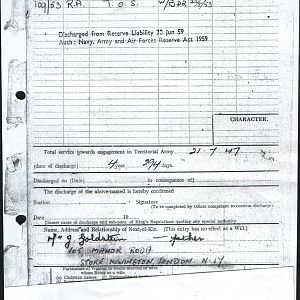 109/53 R.A. T.O.S. W/BDR
Discharged from Reserve Liability 30 Jun 59
Auth: Navy, Army and Air Forces Reserve Act 1959
CHARACTER.
Total service towards engagement in Territorial Army 21-7-47
(date of discharge) years days.
Discharged on (Date) in consequence of
The discharge of the above-named is hereby confirmed
Station Signature
(To be completed by Officer competent to confirm discharge)
Date 19
(Insert cause of discharge and sub-para. of King's Regulations quoting any special authority)
Name, Address and Relationship of Next-of-Kin. (This entry has no effect as a Will)
Mr J. Goldstein — father
105 MANOR ROAD
STOKE NEWINGTON, LONDON N.17
Particulars of Waiting to
which sharing or wife